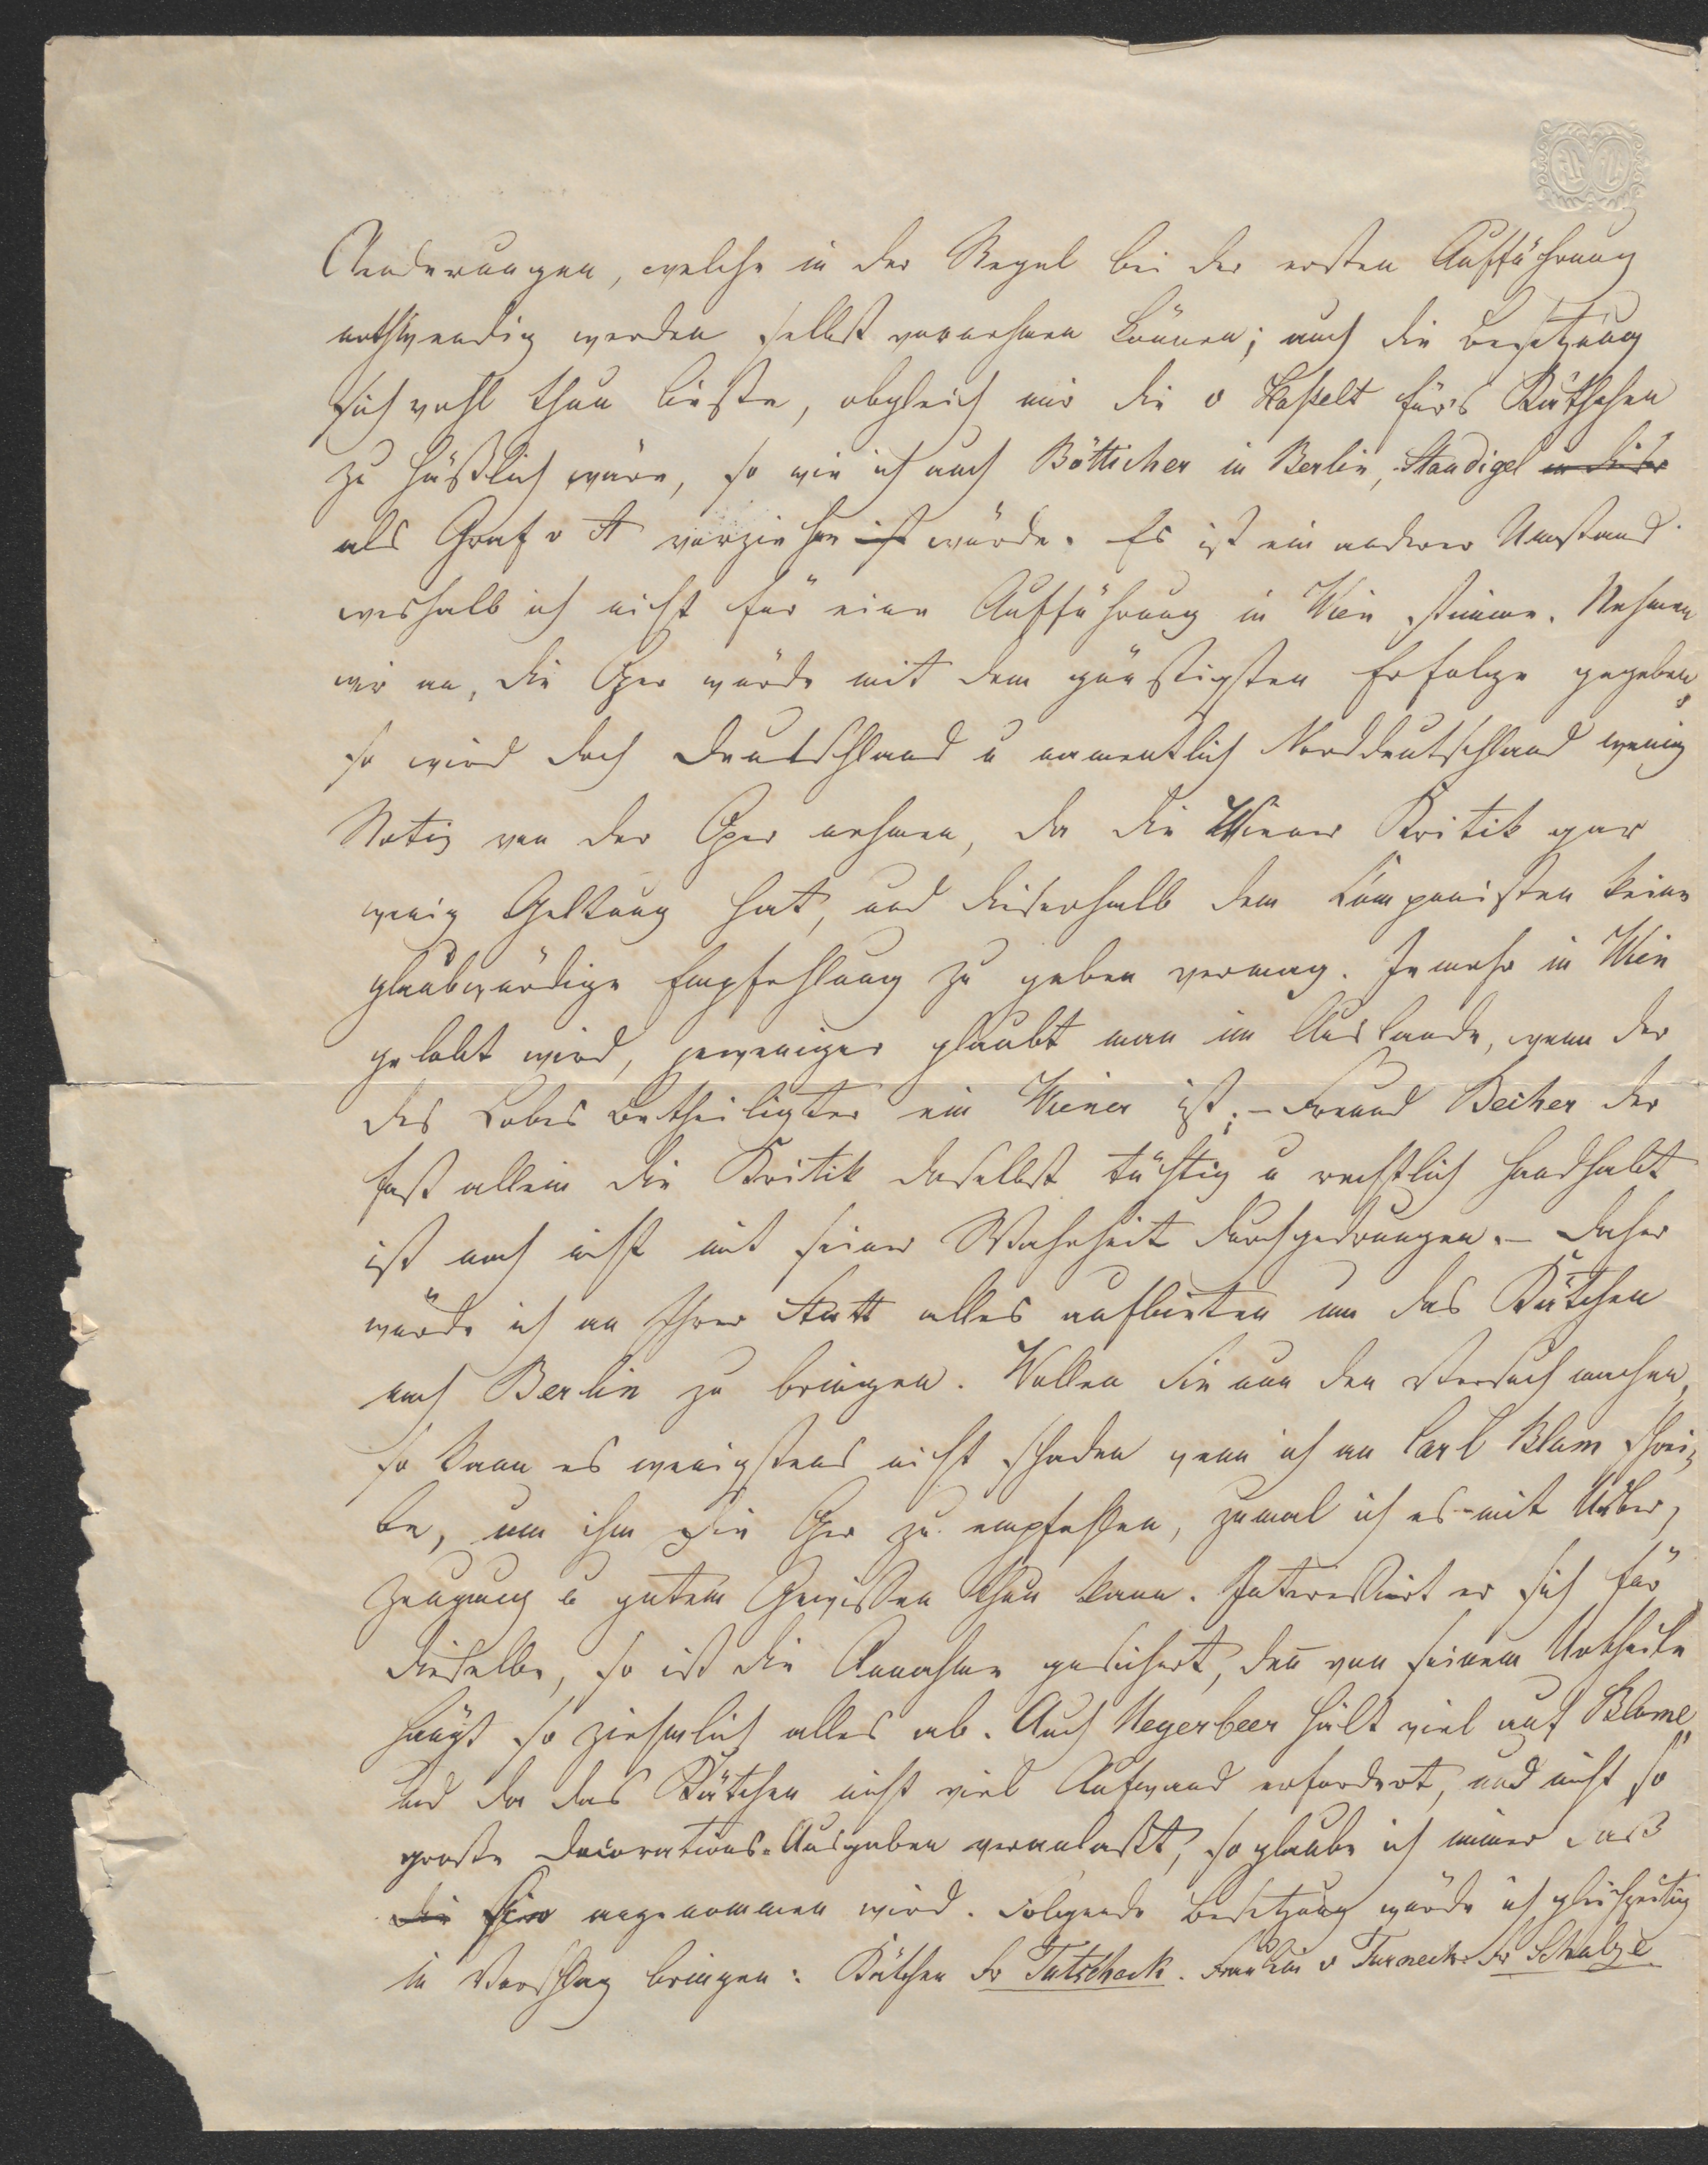 Aenderungen, welche in der Regel bei der ersten Aufführung
nothwendig werden selbst vornehmen können; auch die Besetzung
sich wohl thun ließe, obgleich mir die v Haßelt für's Käthchen
zu häßlich wäre, so wie ich auch Bötticher in Berlin, Staudigel
als Graf v St vorziehen ist würde. Es ist ein anderer Umstand
weshalb ich nicht für eine Aufführung in Wien stimme. Nehmen
wir an, die Oper würde mit dem günstigsten Erfolge gegeben,
so wird doch Deutschland u namentlich Norddeutschland wenig
Notiz von der Oper nehmen, da die Wiener Kritik gar
wenig Geltung hat, und dieserhalb dem Componisten keine
glaubwürdige Empfehlung zu geben vermag. Jemehr in Wien
gelobt wird, jeweniger glaubt man im Auslande, wenn der
des Lobes Betheiligter ein Wiener ist; – Freund Becher der
fast allein die Kritik daselbst tüchtig u rechtlich handhabt
ist noch nicht mit seiner Wahrheit durchgedrungen. – Daher
würde ich an Ihrer Statt alles aufbieten um das Kätchen
nach Berlin zu bringen. Wollen Sie nun den Versuch machen,
so kann es wenigstens nicht schaden wenn ich an Carl Blum schrei-
be, um ihm die Oper zu empfehlen, zumal ich es mit Ueber-
zeugung u gutem Gewissen thun kann. Interessirt er sich für
dieselbe, so ist die Annahme gesichert, den̄ von seinem Urtheile
hängt so ziehmlich alles ab. Auch Meyerbeer hält viel auf Blume,
und da das Kätchen nicht viel Aufwand erfordert, und nicht so
große Decorations-Ausgaben veranlaßt, so glaube ich immer daß
die Oper angenommen wird. Folgende Besetzung würde ich gleichzeitig
in Vorschlag bringen: Kätchen Fr Tutscheck. Fräulein v Turneck. Fr Schulze